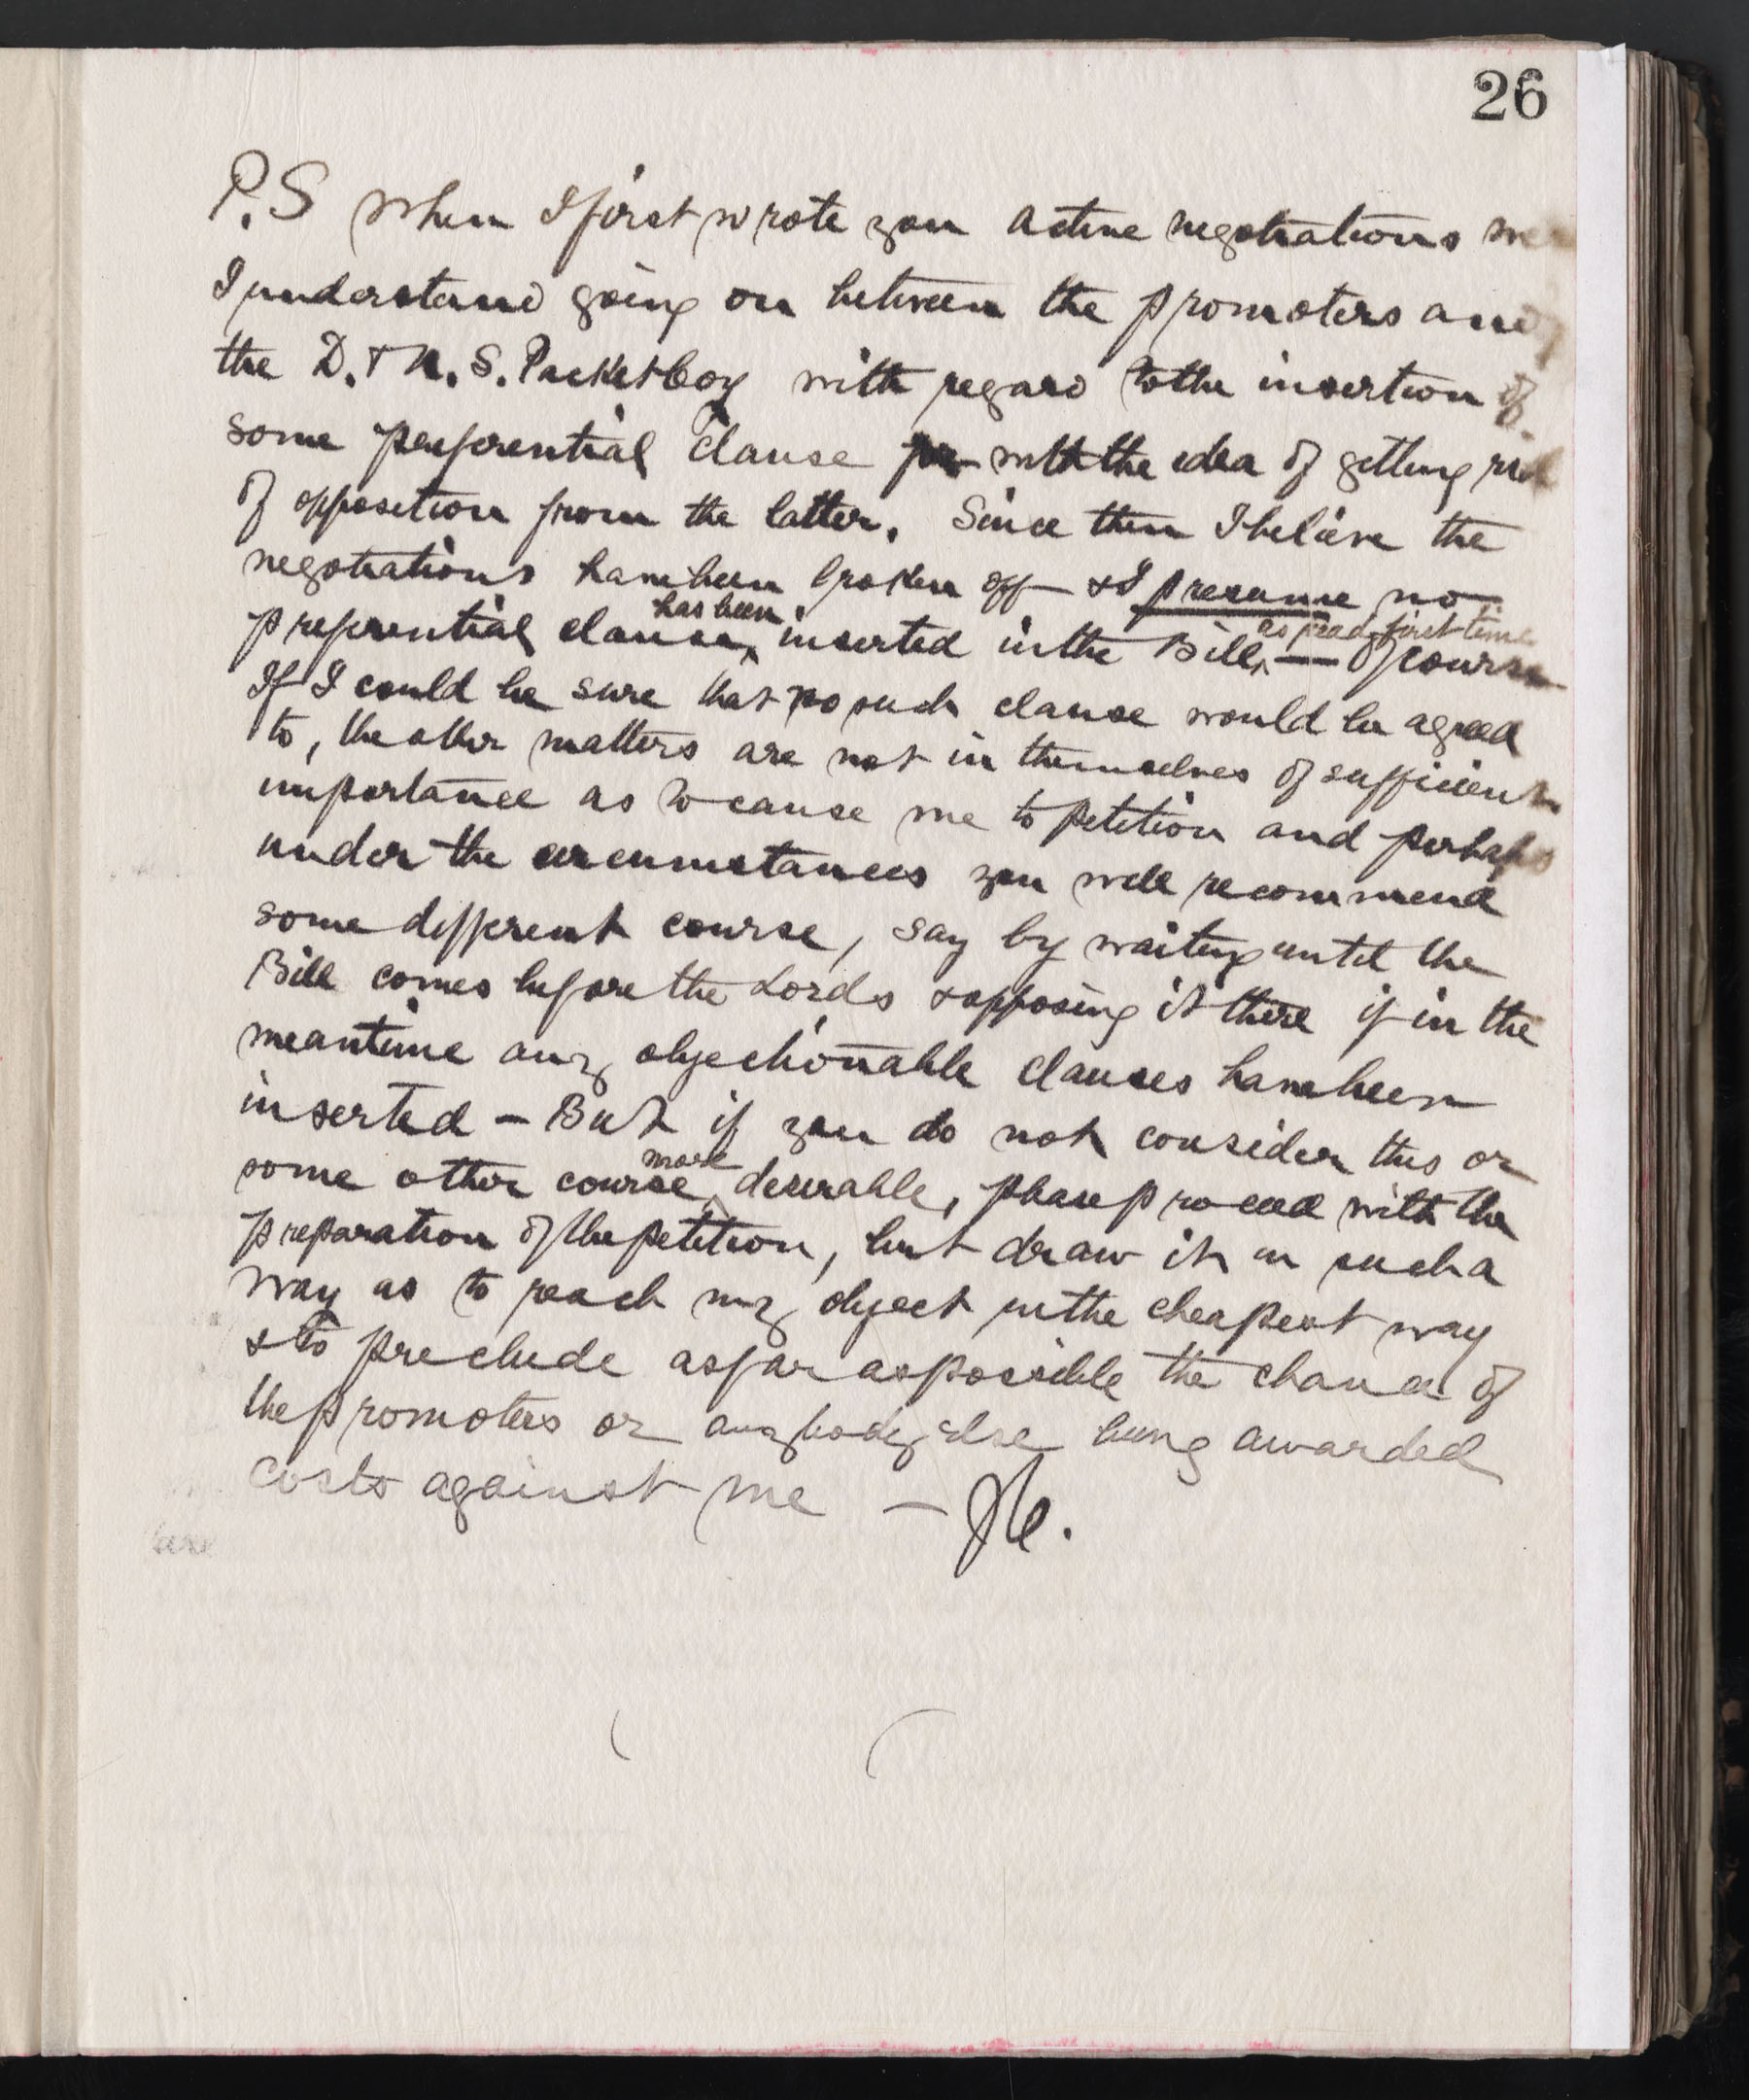 26
P.S When I first wrote you active negotiations were
I understand going on between the promoters and
the D. & N. S. Packet Coy with regard to the insertion of
some preferential clause with the idea of getting rid
of opposition from the latter. Since then I believe the
negotiations have been broken off — & I presume no
has been
as read first time
preferential clause inserted in the Bill, — Of course
If I could be sure that no such clause would be agreed
to, the other matters are not in themselves of sufficient
importance as to cause me to petition and perhaps
under the circumstances you will recommend
some different course, say by waiting until the
Bill comes before the Lords & opposing it there if in the
meantime any objectionable clauses have been
inserted — But if you do not consider this or
more
some other course desirable, please proceed with the
preparation of the petition, but draw it in such a
way as to reach my object in the cheapest way
& to preclude as far as possible the chance of
the promoters or anybody else being awarded
costs against me —